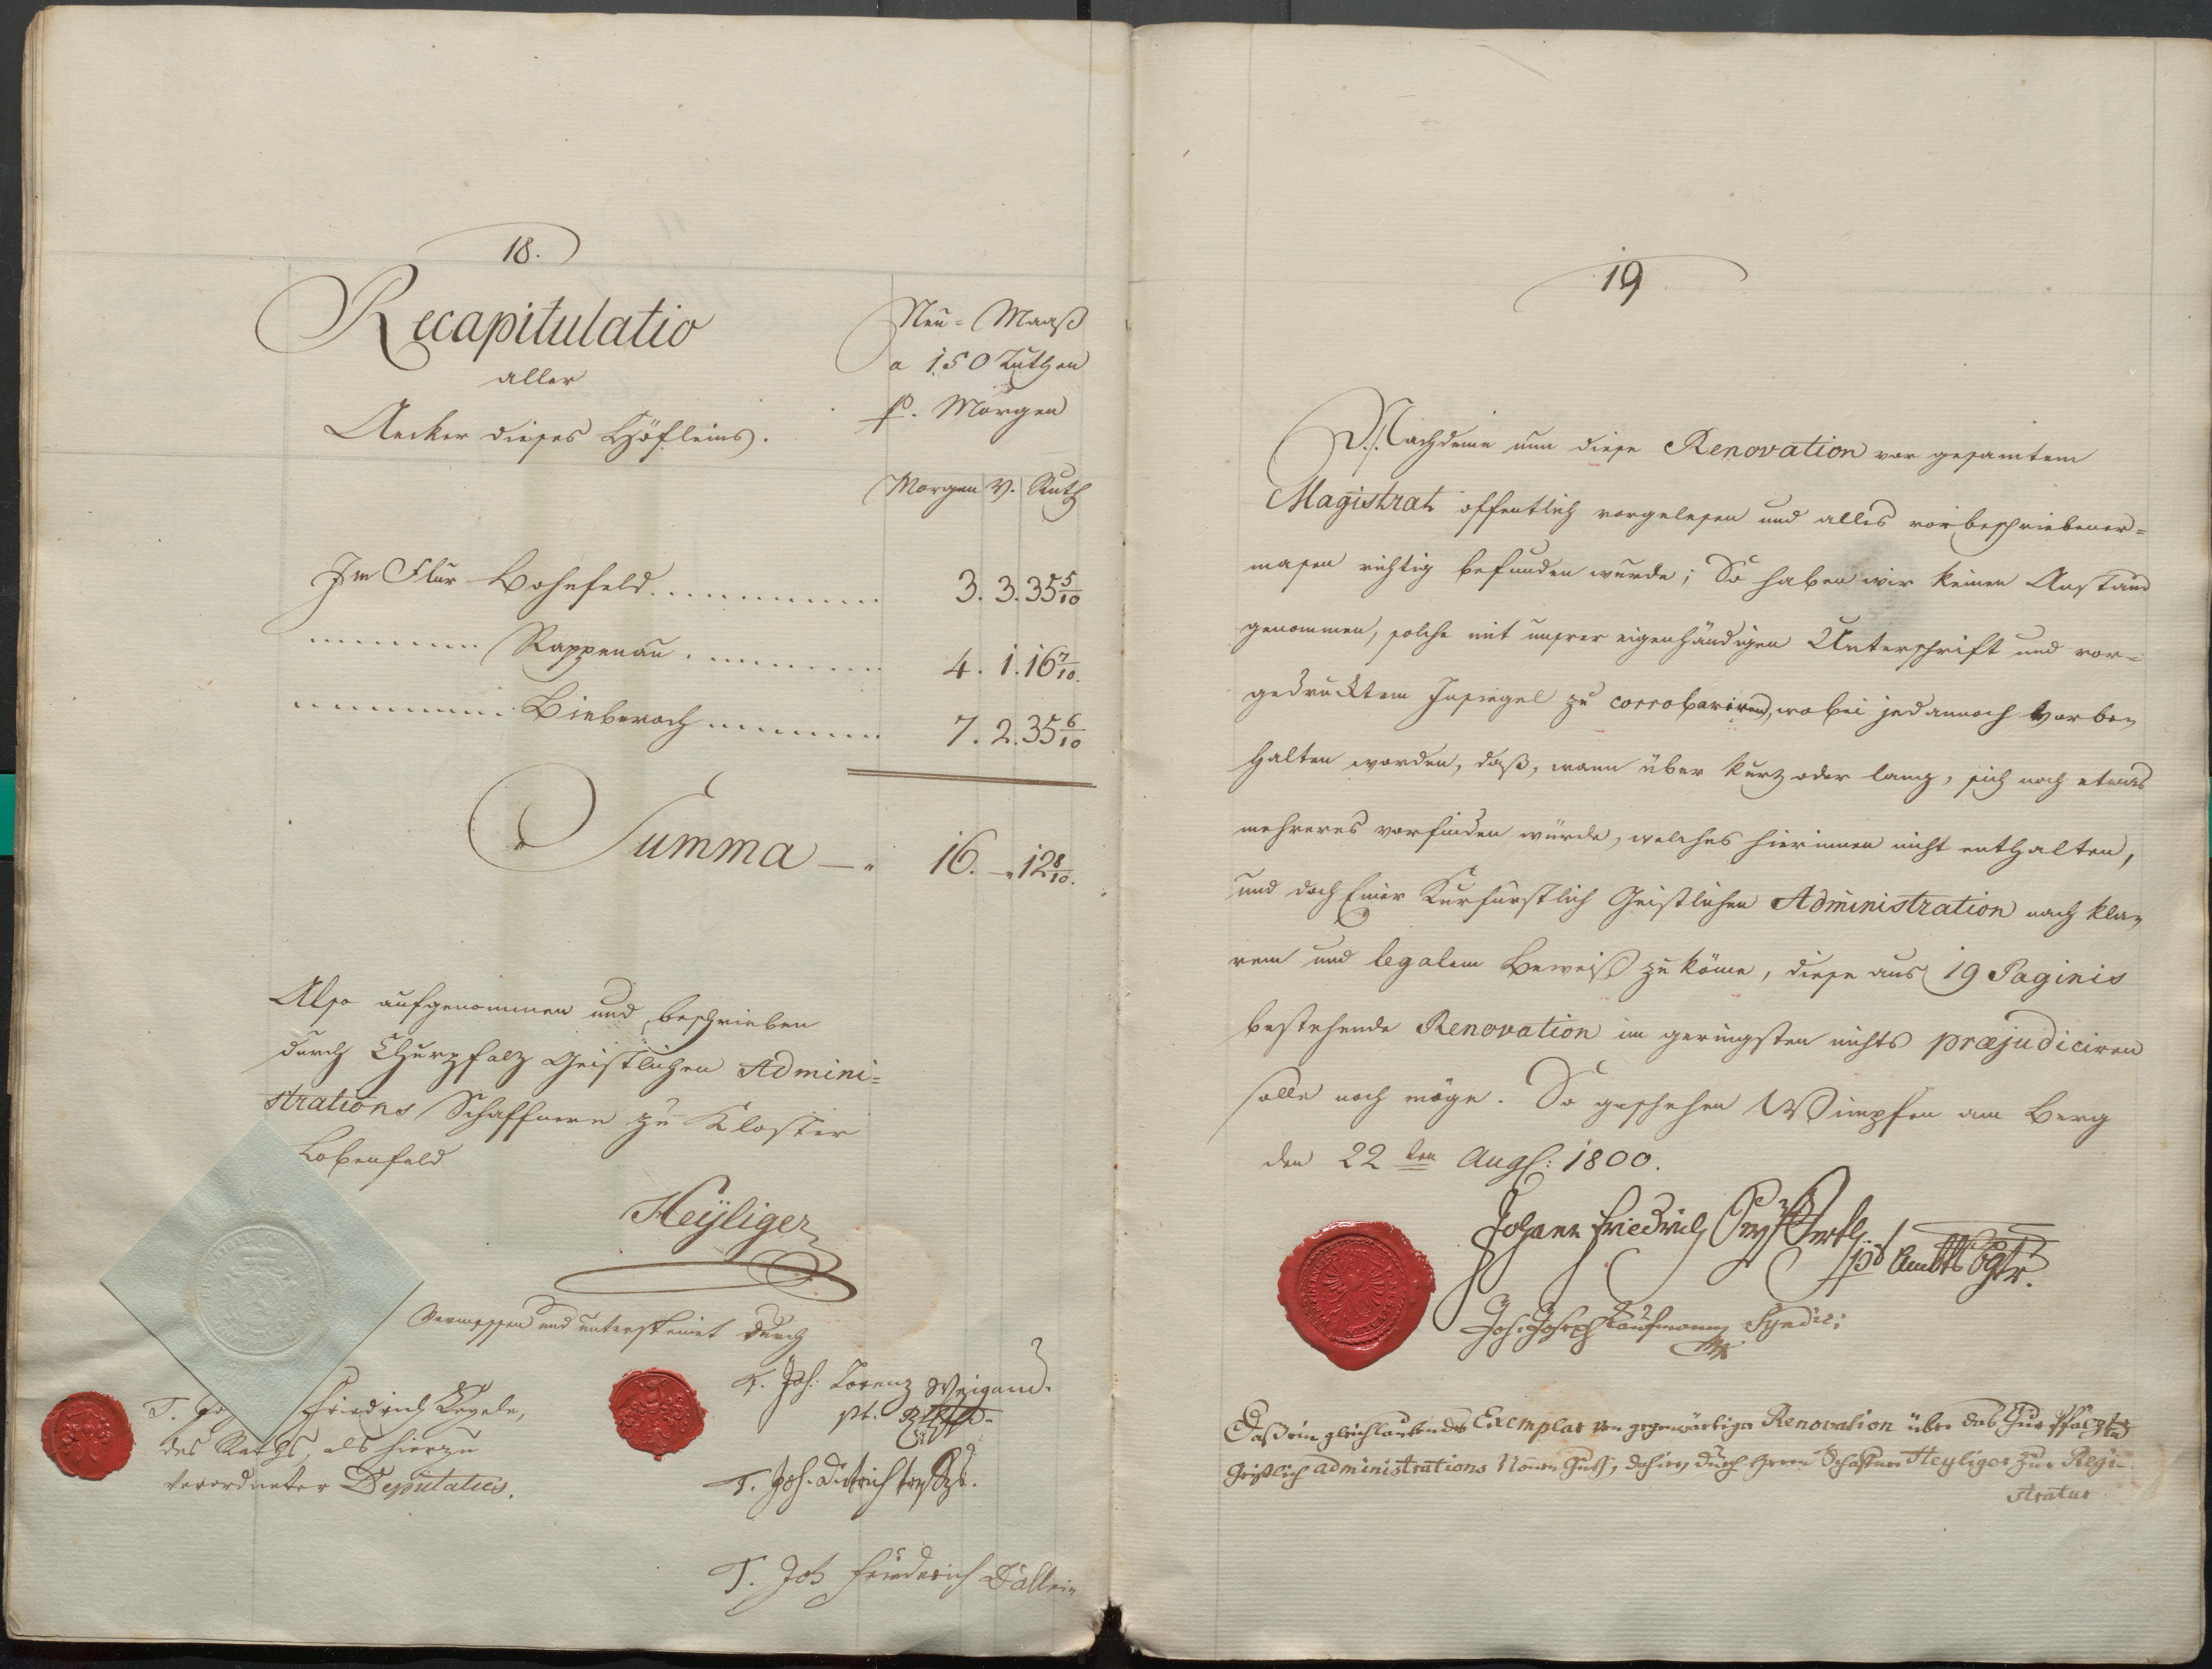 18.
Recapitulatio
aller
Aecker dieses Höfleins.
Neu-Maaß
a 150 Ruthen
p. Morgen
Morgen V. Ruth
Im Flur Bohnfeld 3. 3. 35 5/10
Rappenau 4. 1. 16 7/10.
Bieberach 7. 2. 35 6/10
Summa 16. — 12 8/10.
Also aufgenommen und beschrieben
durch Churpfalz Geistlichen Admini=
strations Schaffnere zu Kloster
Lobenfeld
Heÿliger
Vermessen und untersteinet durch
T. Joh: Lorenz Weigand.
T. Friedrich
des Raths, als hierzu
verordneter Deputatus.
T. Joh. Dietrich
T. Joh Friederich
19
Nachdeme nun diese Renovation vor gesamtem
Magistrat offentlich vorgelesen und alles vorbeschriebener=
masen richtig befunden wurde; So haben wir keinen Anstand
genommen, solche mit unsrer eigenhändigen Unterschrift und vor=
gedrucktem Insiegel zu corroboriren, wobei jedannoch vorbe=
halten worden, daß, wann über kurz oder lang, sich noch etwas
mehreres vorfinden würde, welches hierinnen nicht enthalten,
und doch Einer Kurfürstlich Geistlichen Administration nach kla=
rem und legalem Beweiß zukäme, diese aus 19 Paginis
bestehende Renovation im geringsten nichts præjudiciren
solle noch möge. So geschehen Wimpfen am Berg
den 22ten Augl: 1800.
Johann Friedrich
Joh. Joseph Kaufmann Syndic:
Daß ein gleichlautendes Exemplar von gegenwärtiger Renovation über das Chur Pfälzische
Geistlich administrations Nonnen Guth, dahier durch Herrn Schaffner Heyliger zur Regi-
stratur